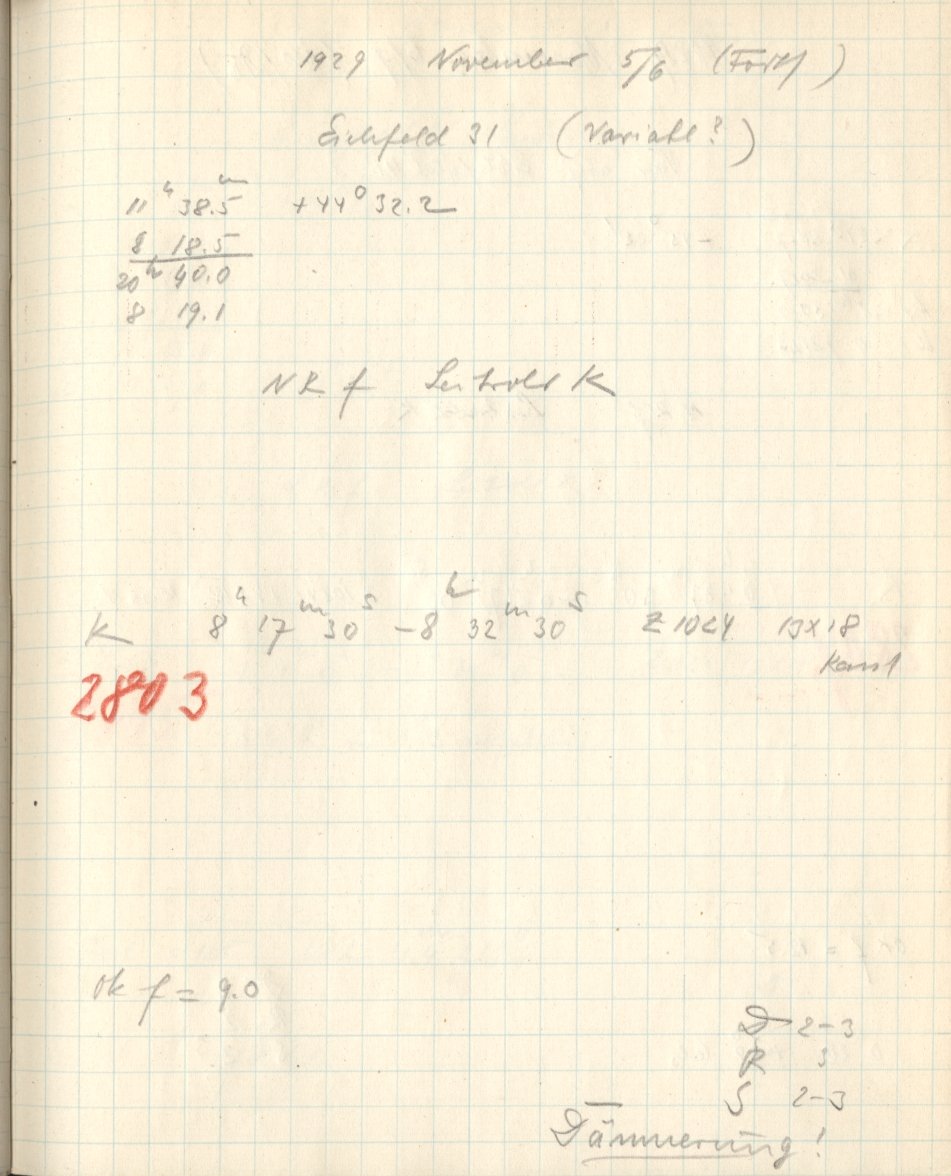 1929 November 5/6 (Forts)
Eichfeld 31 (Variabl?)
11ʰ 38.5ᵐ +44° 32.2
8 18.5
20ʰ 40.0
8 19.1
NR f K
K 8ʰ 17ᵐ 30ˢ – 8ʰ 32ᵐ 30ˢ Z 1024 13x18
2803
Ok f = 9.0
D 2-3
R 3
S 2-3
Dämmerung!